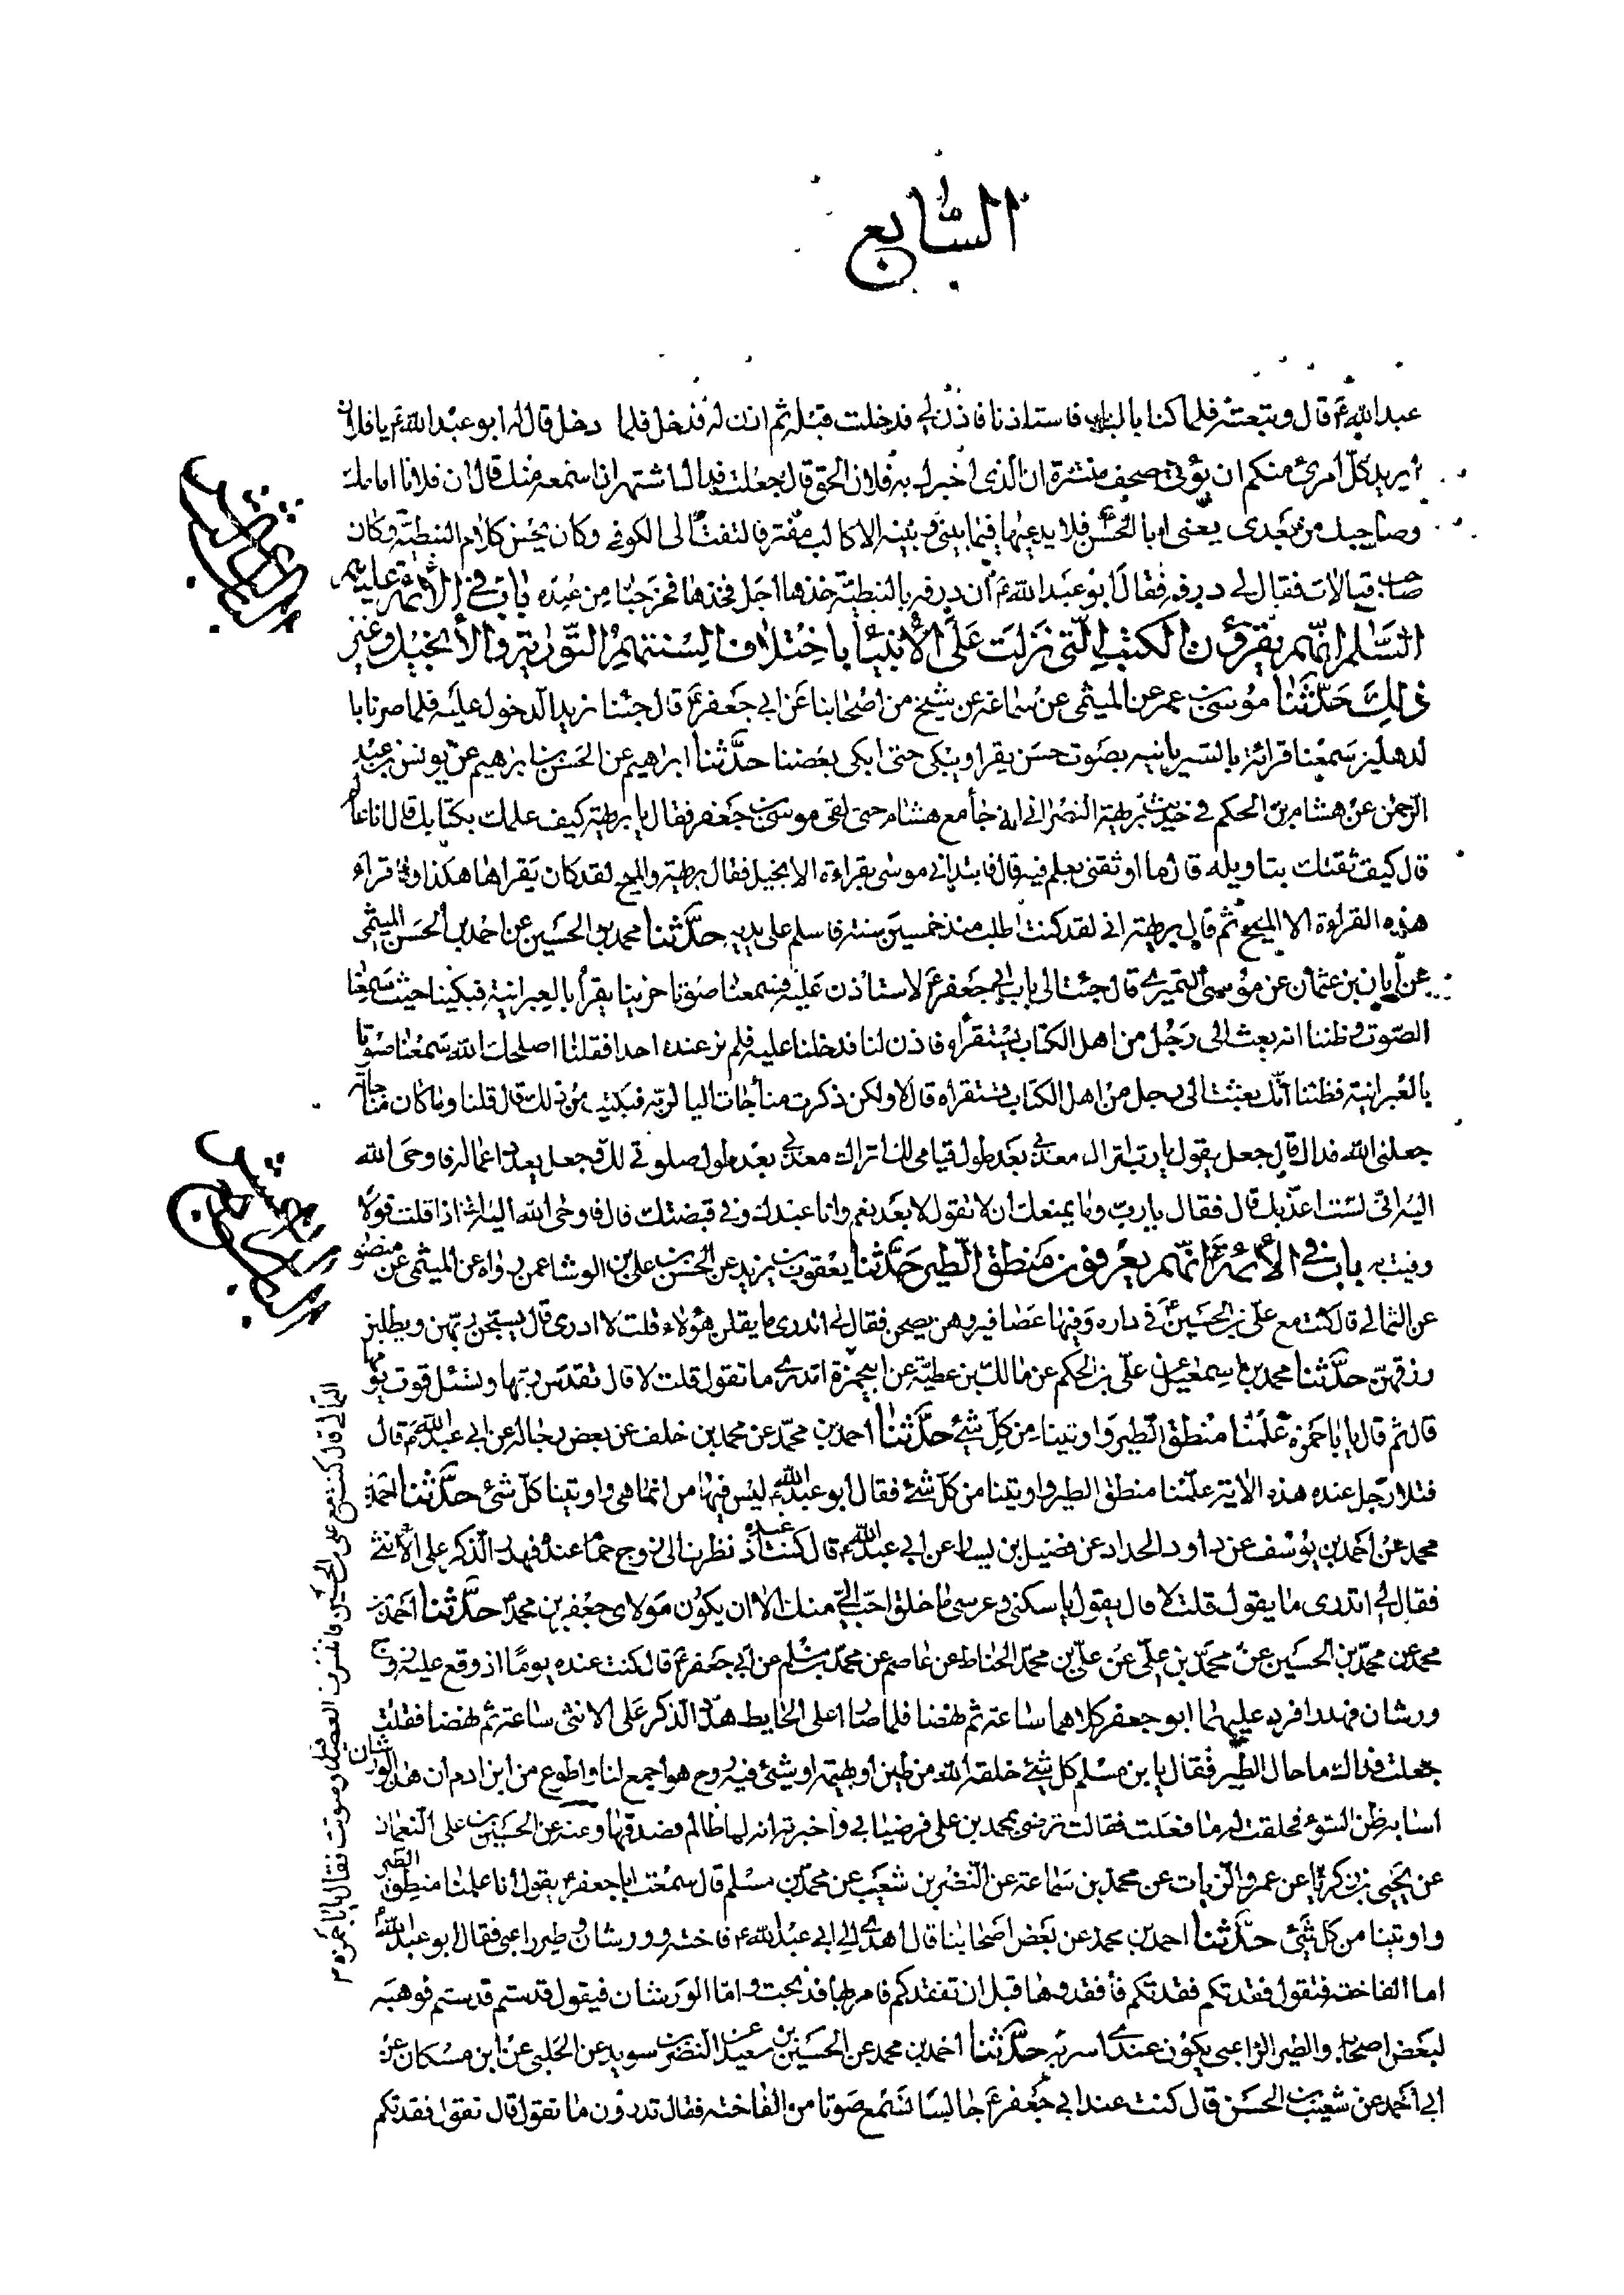 السابع
عبد الله ع قال وتبعته فلما كنا بالباب فاستاذنا فاذن لي فدخلت قبله ثم اذن له فدخل فلما دخل قال له ابو عبد الله ع يا فلان
ايريد كل امرئ منكم ان يؤتى صحف منشرة ان الذى اخبرك به فلان الحق قال جعلت فداك اشتهر ان اسمعه منك قال ان فلانا امامك
وصاحبك من بعدى يعنى ابا الحسن ع فلا يدعيها فيما بينى وبينه الا كالب مفتر فالتفت الى الكوفى وكان يحسن كلام النبطية وكان
صاحب قبالات فقال لى درفه فقال ابو عبد الله ع ان درفه بالنبطية خذها اجل فخذها فخرجنا من عنده باب فى الائمة عليهم
السلام انهم يقرؤن الكتب التى نزلت على الانبيا باختلاف السنتهم التورية والانجيل وغير
ذلك حدثنا موسى بن عمر عن الميثمى عن سماعة عن شيخ من اصحابنا عن ابى جعفر ع قال جئنا نريد الدخول عليه فلما صرنا با
لدهليز سمعنا قرائة بالسريانيه بصوت حسن يقرا ويبكى حتى ابكى بعضنا حدثنا ابرهيم عن الحسن بن ابرهيم عن يونس بن عبد
الرحمن عن هشام بن الحكم فى حديث بريهة النصرانى انه جا مع هشام حتى لقى موسى بن جعفر فقال يا بريهة كيف علمك بكتابك قال انا عالم
قال كيف ثقتك بتاويله قال ما اوثقنى بعلم فيه قال فابتدانى موسى بقراءة الانجيل فقال بريهة والمسيح لقد كان يقراها هكذا وما قراء
هذه القراءة الا المسيح ثم قال بريهة انى لقد كنت اطلب منذ خمسين سنة فاسلم على يديه حدثنا محمد بن الحسين عن احمد بن الحسن الميثمى
عن ابان بن عثمان عن موسى النميرى قال جئت الى باب ابى جعفر ع لاستاذن عليه فسمعنا صوتا حزينا يقرأ بالعبرانية فبكينا حيث سمعنا
الصوت وظننا انه بعث الى رجل من اهل الكتاب يستقراه فاذن لنا فدخلنا عليه فلم نر عنده احدا فقلنا اصلحك الله سمعنا صوتا
بالعبرانية فظننا انك بعثت الى رجل من اهل الكتاب تستقراه قال لا ولكن ذكرت مناجات اليا لربه فبكيت من ذلك قال قلنا وما كان مناجاته
جعلنى الله فداك قال جعل يقول يا رب اتراك معذبى بعد طول قيامى لك اتراك معذبى بعد طول صلوتى لك وجعل يعدد اعماله فاوحى الله
اليه انى لست اعذبك قال فقال يا رب وما يمنعك ان لا تقول لا بعد نعم وانا عبدك وفى قبضتك قال فاوحى الله اليه انى اذا قلت قولا
وفيت به باب فى الائمة ع انهم يعرفون منطق الطير حدثنا يعقوب بن يزيد عن الحسن بن على بن الوشا عمن رواه عن الميثمى عن منصور
عن الثمالى قال كنت مع على بن الحسين ع فى داره وفيها عصافير وهن يصحن فقال لى اتدرى ما يقلن هؤلاء قلت لا ادرى قال يسبحن ربهن ويطلبن
رزقهن حدثنا محمد بن اسمعيل عن على بن الحكم عن مالك بن عطية عن ابى حمزة اتدرى ما تقول قلت لا قال تقدس ربها وتسئل قوت يومها
قال ثم قال يا با حمزة علمنا منطق الطير واوتينا من كل شئ حدثنا احمد بن محمد عن محمد بن خلف عن بعض رجاله عن ابى عبد الله ع قال
فتلا رجل عنده هذه الاية علمنا منطق الطير واوتينا من كل شئ فقال ابو عبد الله ع ليس فيها من انما هى واوتينا كل شئ حدثنا احمد بن
محمد عن احمد بن يوسف عن داود الحداد عن فضيل بن يسار عن ابى عبد الله ع قال كنت عنده اذ نظرت الى زوج حمام عنده فهدر الذكر على الانثى
فقال لى اتدرى ما يقول قلت لا قال يقول يا سكنى وعرسى ما خلق احب الى منك الا ان يكون مولاى جعفر بن محمد حدثنا احمد بن
محمد عن محمد بن الحسين عن محمد بن على عن على بن محمد الحناط عن عاصم عن محمد بن مسلم عن ابى جعفر ع قال كنت عنده يوما اذ وقع عليه زوج
ورشان فهدلا فرد عليهما ابو جعفر كلامهما ساعة ثم نهضا فلما صارا على الحايط هدل الذكر على الانثى ساعة ثم نهضا فقلت
جعلت فداك ما حال الطير فقال يا بن مسلم كل شئ خلقه الله من طير او بهيمة او شئ فيه روح هو اجمع لنا واطوع من ابن ادم ان هذا الورشان
اسا به ظن السوء فحلفت له ما فعلت فقالت ترضى بمحمد بن على فرضيا بى واخبرته انه لها ظالم فصدقها وعنه عن الحسين بن على النعمان
عن يحيى بن زكريا عن عمرو الزيات عن محمد بن سماعة عن النضر بن شعيب عن محمد بن مسلم قال سمعت ابا جعفر ع يقول انا علمنا منطق الطير
واوتينا من كل شئ حدثنا احمد بن محمد عن بعض اصحابنا قال اهدى الى ابى عبد الله ع فاخته وورشان وطير راعبى فقال ابو عبد الله ع
اما الفاخته فتقول فقدتكم فقدتكم فافقدوها قبل ان تفقدكم فامر بها فذبحت واما الورشان فيقول قدستم قدستم فوهبه
لبعض اصحابه والطير الراعبى يكون عندى اسر به حدثنا احمد بن محمد عن الحسين بن سعيد عن النضر بن سويد عن الحلبى عن ابن مسكان عن
ابى احمد عن شعيب بن الحسن قال كنت عند ابى جعفر ع جالسا فسمع صوتا من الفاخته فقال تدرون ما تقول قال تقول فقدتكم
الثمالى قال كنت مع على بن الحسين فانتشرت العصافير وصوتت فقال يا با حمزه